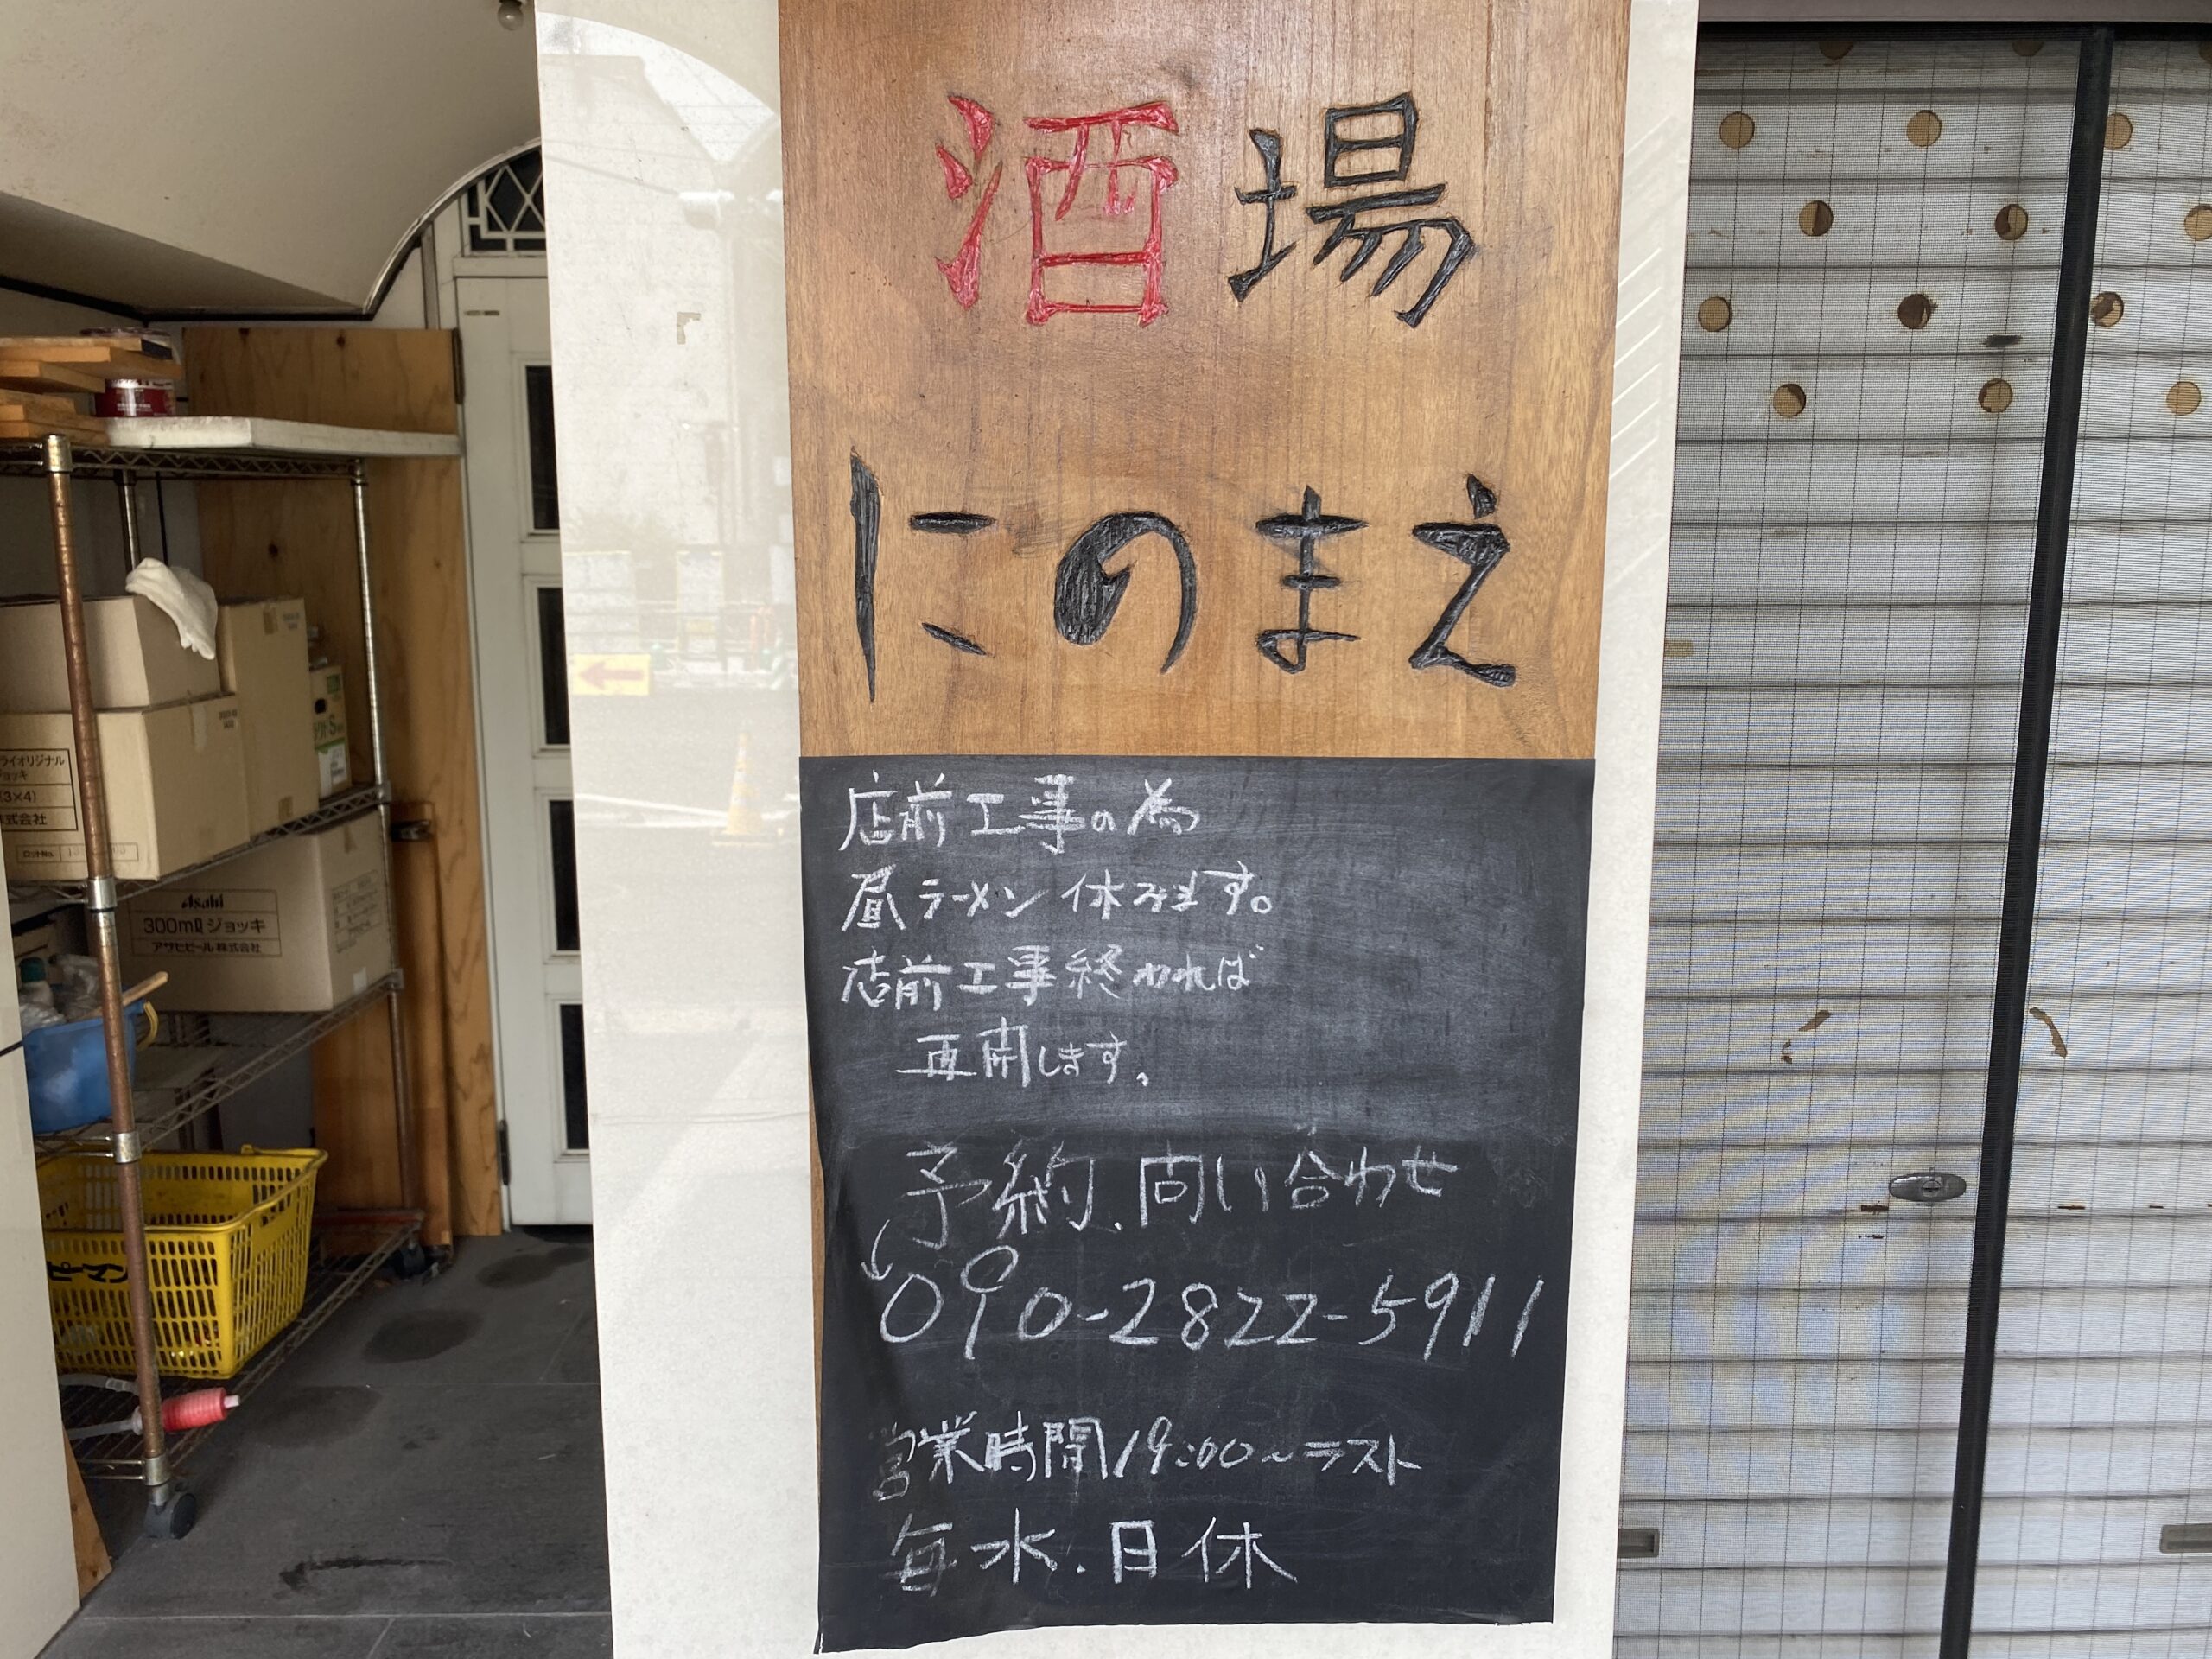 酒場
にのまえ
店前工事の為
昼ラーメン休みます。
店前工事終われば
再開します。
予約、問い合わせ
090-2822-5911
営業時間19:00~ラスト
毎水、日休
ライオリジナル
ジョッキ
(3×4)
株式会社
ロットNo.
Asahi
300mlジョッキ
アサヒビール株式会社